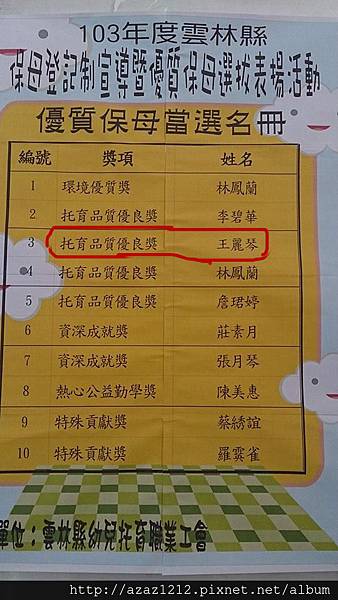 103年度雲林縣
保母登記制宣導暨優質保母選拔表揚活動
優質保母當選名冊
編號 獎項 姓名
1 環境優質獎 林鳳蘭
2 托育品質優良獎 李碧華
3 托育品質優良獎 王麗琴
4 托育品質優良獎 林鳳蘭
5 托育品質優良獎 詹珺婷
6 資深成就獎 莊素月
7 資深成就獎 張月琴
8 熱心公益勤學獎 陳美惠
9 特殊貢獻獎 蔡綉誼
10 特殊貢獻獎 羅雲雀
單位：雲林縣幼兒托育職業工會
http://azaz1212.pixnet.net/album